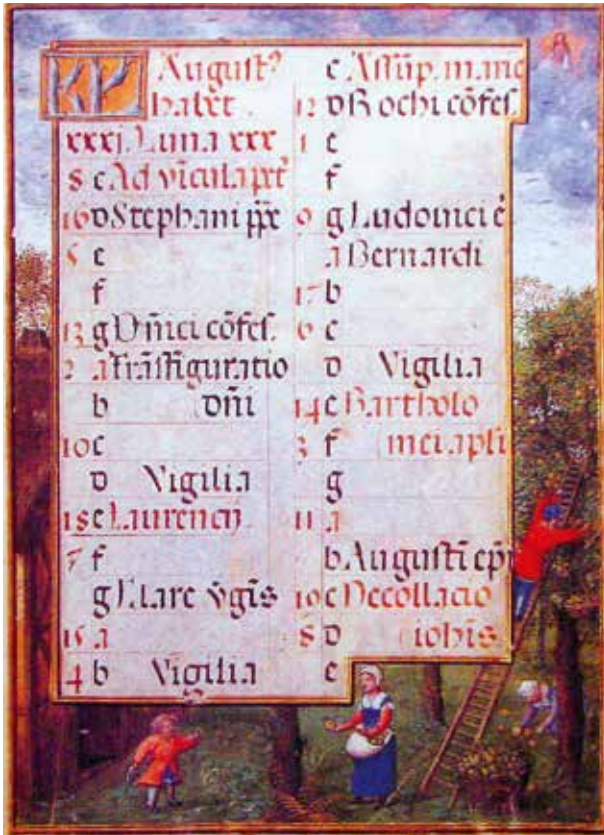 KL August⁹
habet
xxxj. Luna xxx
8 c Ad vīcula pet̄
16 D Stephani p̄p̄e
5 e
f
13 g Dn̄ici cōfes.
2 a Trāsfiguratio
b Dn̄i
10 c
D Vigilia
18 e Laurencij
7 f
g Clare v̄gīs
15 a
4 b Vigilia
c Assūp. marie
12 D Rochi cōfes.
1 e
f
9 g Ludouici ē
a Bernardi
17 b
6 c
D Vigilia
14 e Bartholo
3 f mei apl̄i
g
11 a
b Augustī ep̄i
19 c Decollacio
8 D iohīs
e